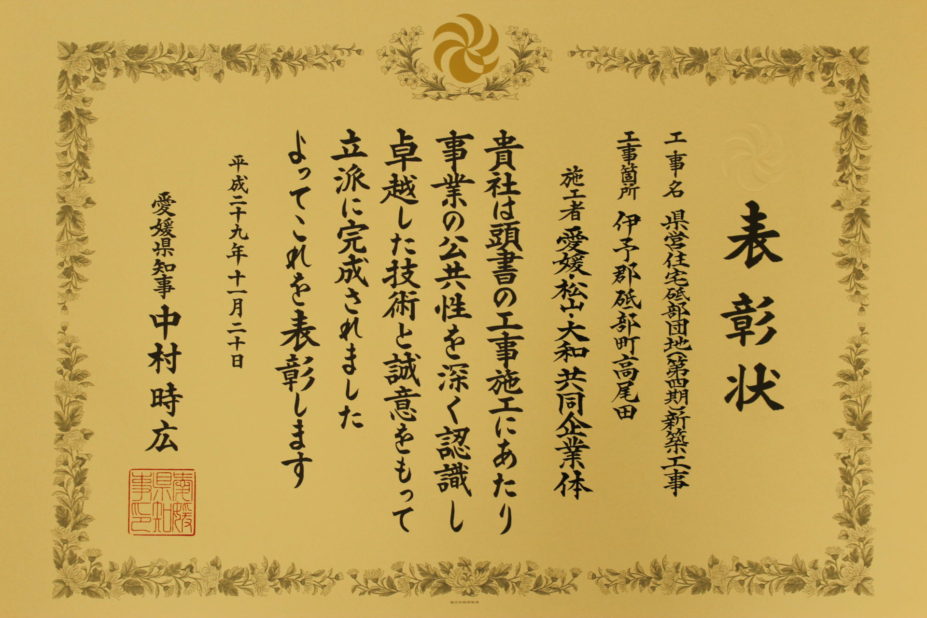 表彰状
工事名 県営住宅砥部団地(第四期)新築工事
工事箇所 伊予郡砥部町高尾田
施工者 愛媛・松山・大和 共同企業体
貴社は頭書の工事施工にあたり
事業の公共性を深く認識し
卓越した技術と誠意をもって
立派に完成されました
よってこれを表彰します
平成二十九年十一月二十日
愛媛県知事 中村時広
愛媛県知事印